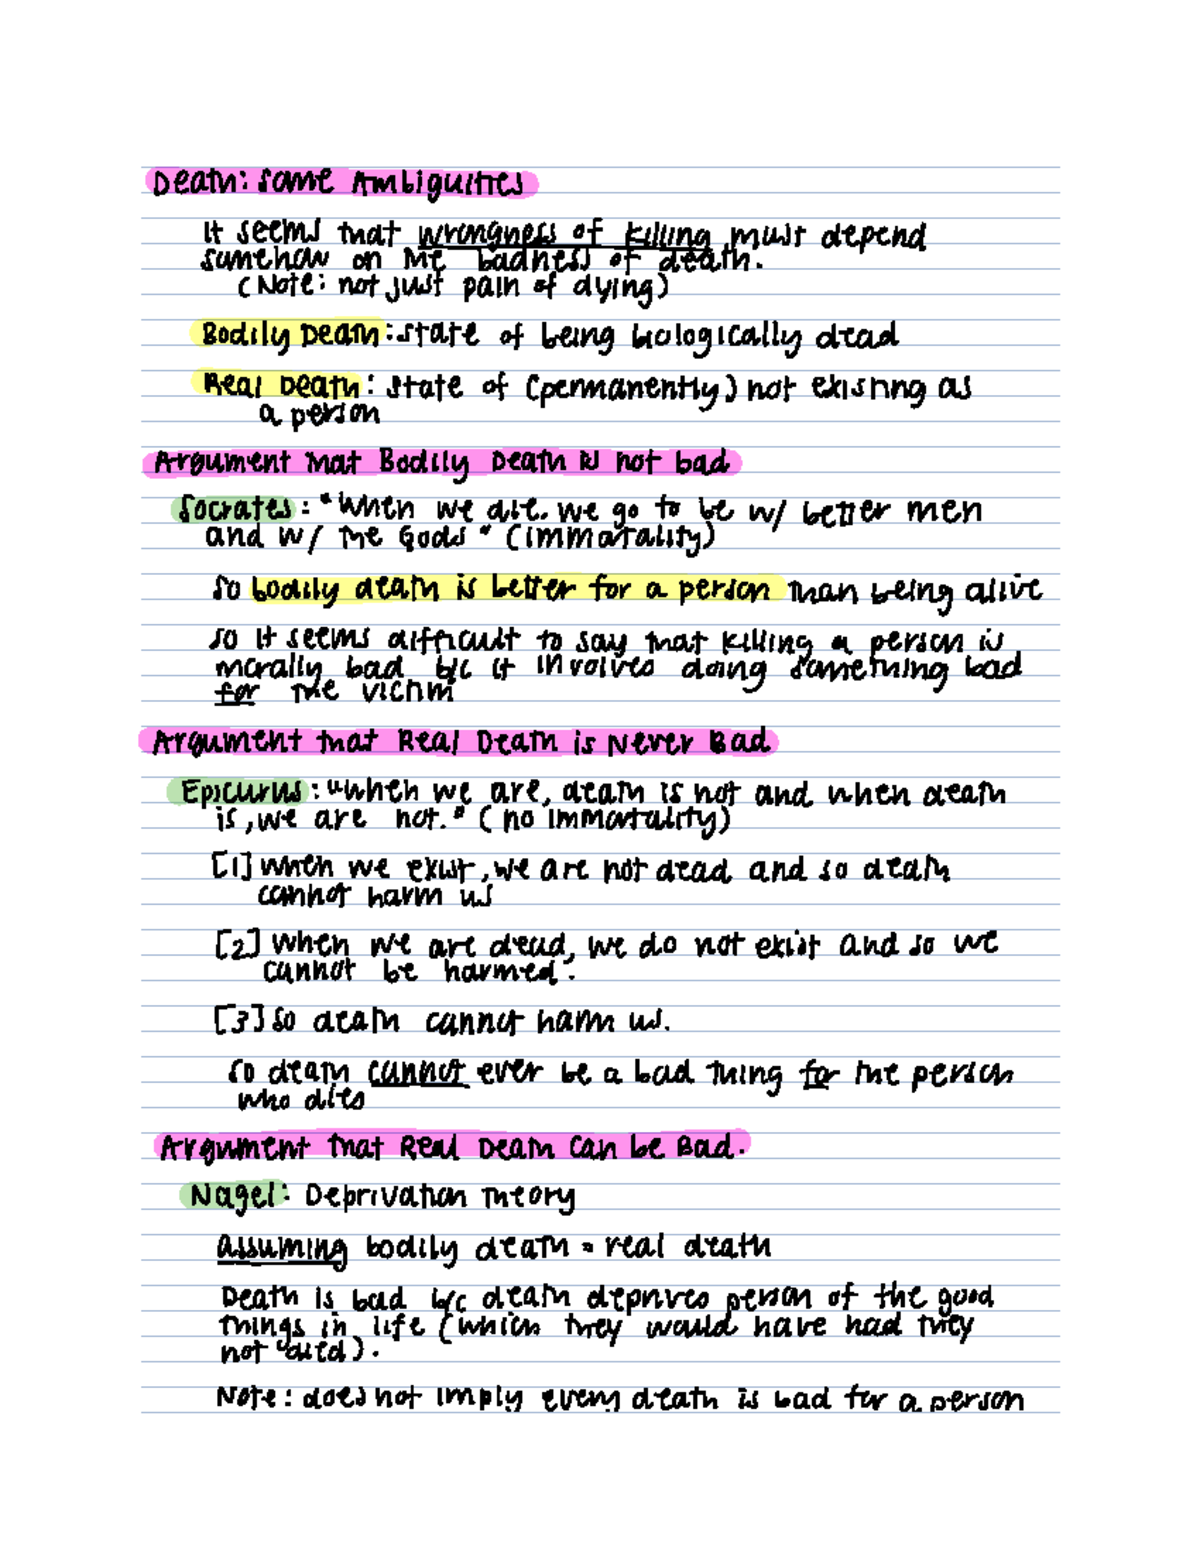 Death: Some Ambiguities
It seems that wrongness of killing must depend
somehow on the badness of death.
(Note: not just pain of dying)
Bodily Death: state of being biologically dead
Real Death: state of (permanently) not existing as
a person
Argument that Bodily Death is not bad
Socrates: "When we die. we go to be w/ better men
and w/ the Gods" (immortality)
so bodily death is better for a person than being alive
so it seems difficult to say that killing a person is
morally bad b/c it involves doing something bad
for the victim
Argument that Real Death is Never Bad
Epicurus: "when we are, death is not and when death
is, we are not." (no immortality)
[1] when we exist, we are not dead and so death
cannot harm us
[2] when we are dead, we do not exist and so we
cannot be harmed.
[3] So death cannot harm us.
So death cannot ever be a bad thing for the person
who dies
Argument that Real Death Can be Bad.
Nagel: Deprivation Theory
assuming bodily death = real death
Death is bad b/c death deprives person of the good
things in life (which they would have had they
not died).
Note: does not imply every death is bad for a person